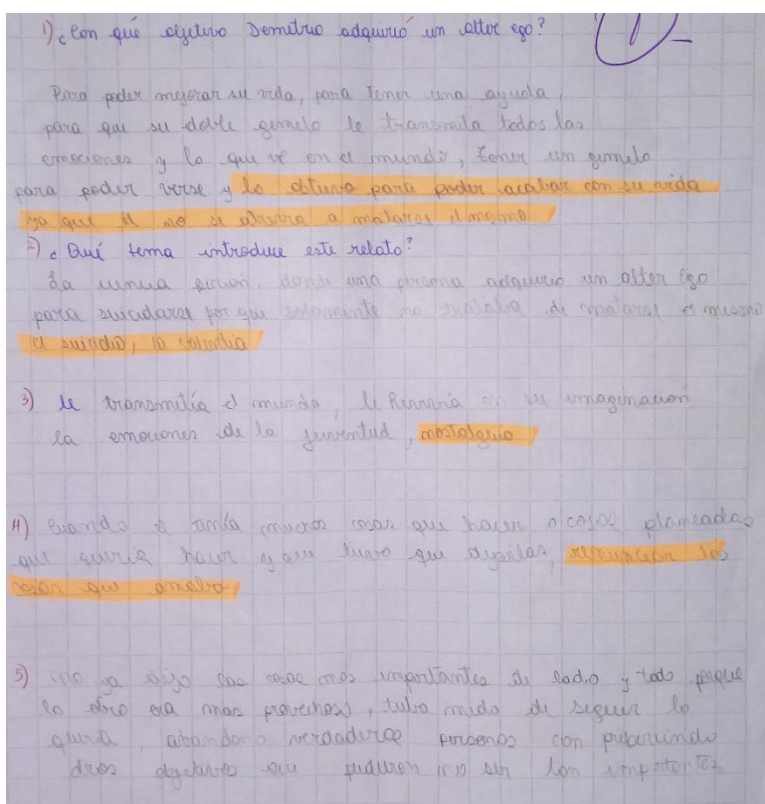 1) ¿Con qué objetivo Demetrio adquirió un alter ego?
Para poder mejorar su vida, para tener una ayuda,
para que su doble gemelo le transmita todos las
emociones y lo que ve en el mundo, tener un gemelo
para poder verse y lo obtuvo para poder acabar con su vida
ya que él no se atrevía a matarse el mismo
2) ¿Qué tema introduce este relato?
La ciencia ficción, donde una persona adquirió un alter ego
para suicidarse por que solamente no trataba de matarse el mismo
el suicidio, la valentía
3) le transmitía el mundo, le en su imaginación
la emociones de la juventud, nostalgia
4) Cuando el tenía muchas cosas que hacer o cosas planeadas
que quería hacer y que tuvo que dejarlas, renunciar las
cosas que amaba
5) ya dejo las cosas mas importantes de lado y todo porque
lo otro era mas provechoso, tubo miedo de seguir lo
quería, abandono verdaderas personas con
otros objetivos que pudieron no ser tan importantes